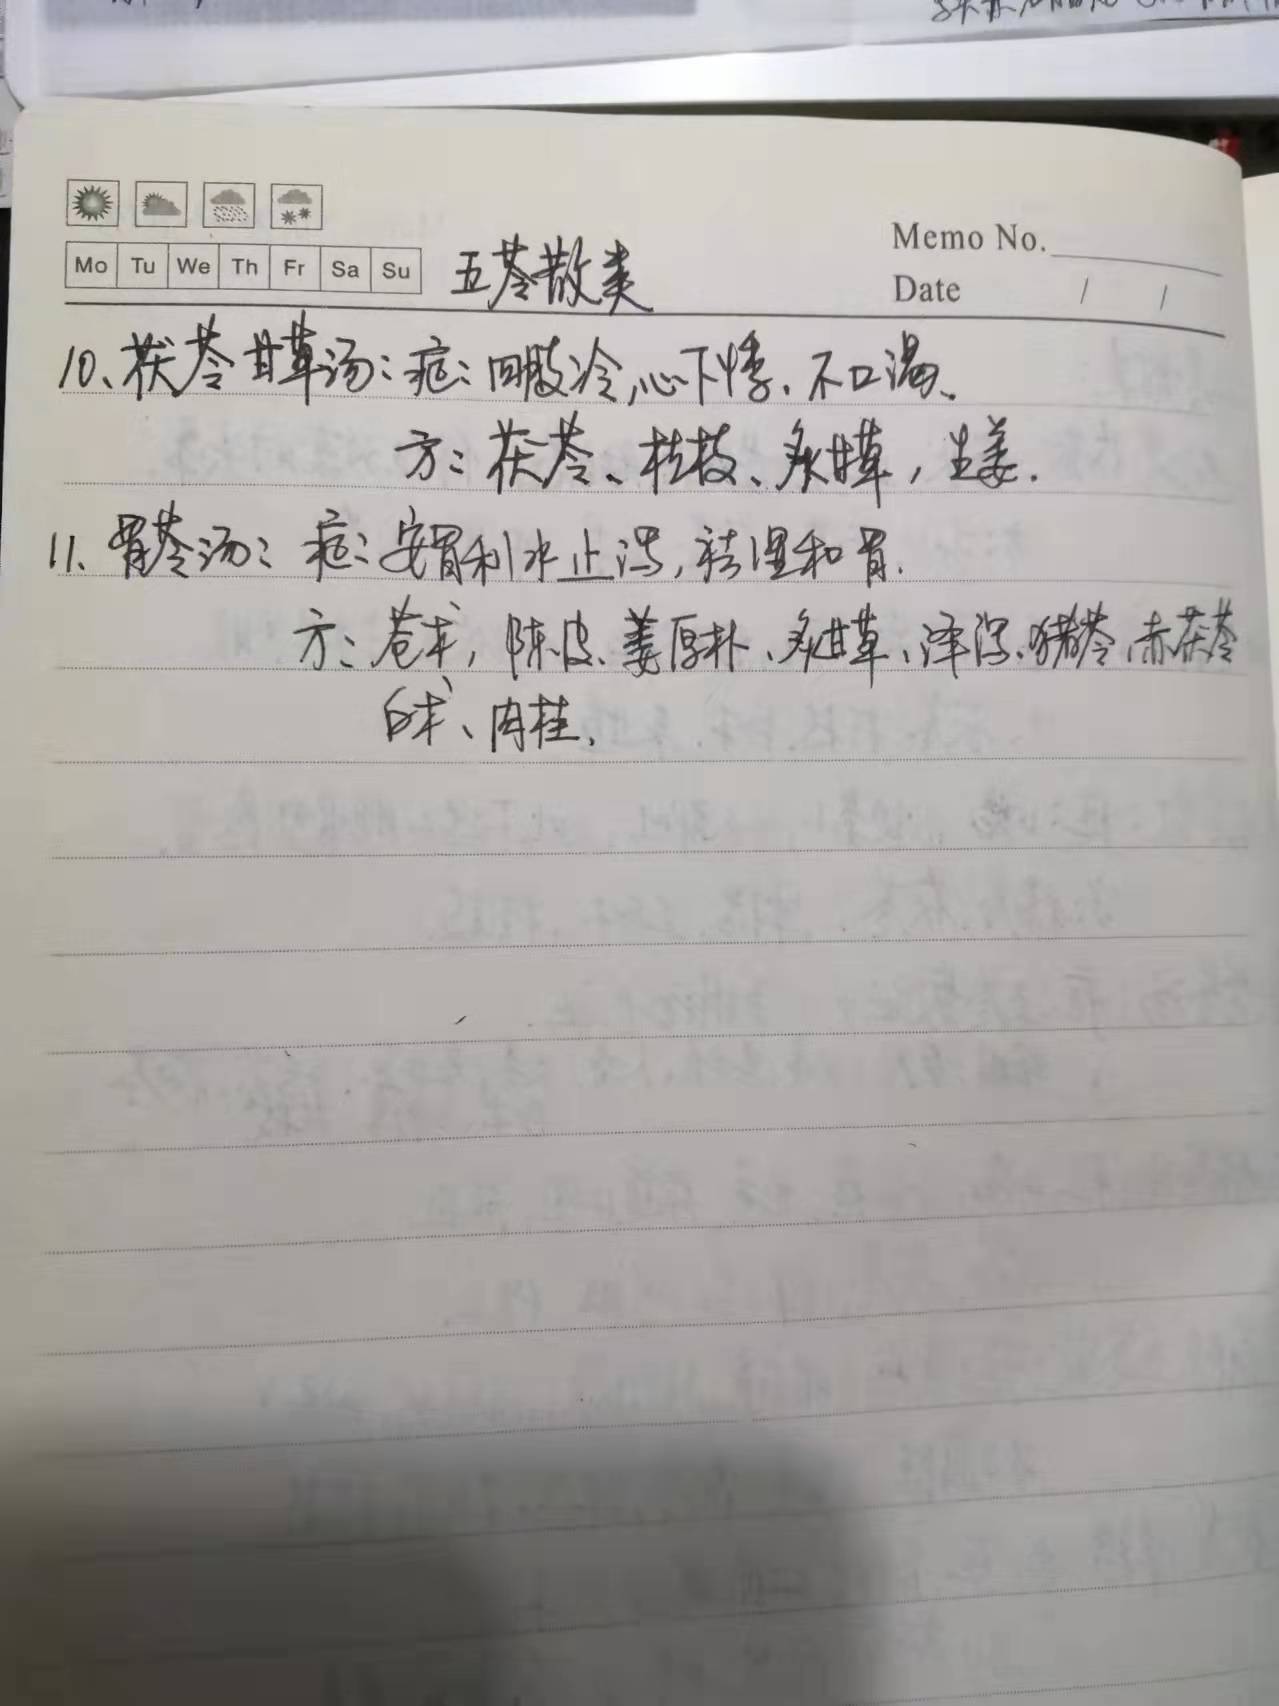 Mo Tu We Th Fr Sa Su
五苓散类
Memo No.
Date / /
10、茯苓甘草汤：症：四肢冷,心下悸、不口渴、
方：茯苓、桂枝、炙甘草，生姜.
11、胃苓汤：症：安胃利水止泻,祛湿和胃.
方：苍术，陈皮、姜厚朴、炙甘草、泽泻、猪苓、赤茯苓
白术、肉桂.